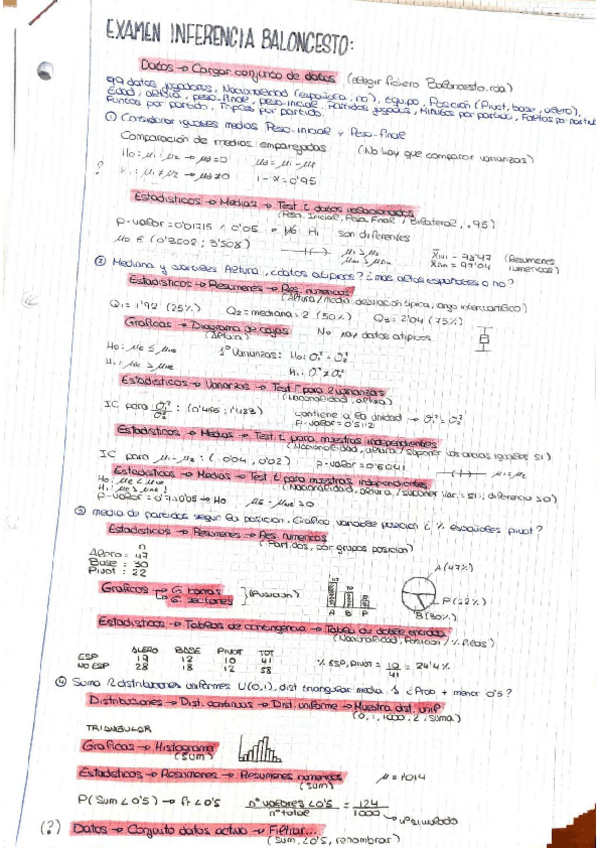 EXAMEN INFERENCIA BALONCESTO:
Datos → Cargar conjunto de datos (elegir fichero Baloncesto.rda)
99 datos jugadores, Nacionalidad (española, no), Equipo, Posición (Pivot, base, alero),
Edad, altura, peso-final, peso-inicial, Partidos jugados, Minutos por partido, Faltas por partido
Puntos por partido, Triples por partido.
① Considerar iguales medias Peso-inicial y Peso-final
Comparación de medias emparejadas (No hay que comparar varianzas)
H₀: μ₁ = μ₂ → μ_D = 0 μ_D = μ₁ - μ_F
? H₁: μ₁ ≠ μ₂ → μ_D ≠ 0 1-α = 0'95
Estadísticos → Medias → Test t datos relacionados
(Peso Inicial, Peso Final / Bilateral, .95)
P-valor = 0'01715 < 0'05 → H₁ son diferentes
μ_D ∈ (0'3502; 3'508)
(Resumenes numericos)
② Mediana y cuartiles Altura, ¿datos atipicos? ¿mas altos españoles o no?
Estadísticos → Resumenes → Res. numericos
(Altura / media, desviación tipica, rango intercuartilico)
Q₁ = 1'92 (25%) Q₂ = mediana = 2 (50%) Q₃ = 2'04 (75%)
Graficas → Diagrama de cajas No hay datos atipicos
(Altura)
1º Varianzas:
Estadísticos → Varianzas → Test F para 2 varianzas
(Nacionalidad, altura)
contiene a la unidad
p-valor = 0'512
Estadísticos → Medias → Test t para muestras independientes
(Nacionalidad, altura / suponer varianzas iguales SI)
IC para μ₁ - μ₂: (-0'04, 0'02) p-valor = 0'6041
Estadísticos → Medias → Test t para muestras independientes
P-valor = 0'7 > 0'05 → H₀
③ media de partidos segun la posicion. Grafico variable posicion ¿% españoles pivot?
Estadísticos → Resumenes → Res. numericos
(Partidos, por grupos posicion)
n
Alero = 47
Base = 30
Pivot = 22
Graficos → G. barras
G. sectores (Posicion)
A B P
A (47%)
P (22%)
B (30%)
Estadísticos → Tablas de contingencia → Tabla de doble entrada
(Nacionalidad, Posicion / % filas)
ALERO BASE PIVOT TOT
ESP 19 12 10 41
NO ESP 28 18 12 58
% ESP, PIVOT = 10/41 = 24'4%
④ Suma 2 distribuciones uniformes U(0,1), dist triangular media 1 ¿Prob + menor 0'5?
Distribuciones → Dist. continuas → Dist. uniforme → Muestra dist. unif
(0, 1, 1000, 2, suma)
TRIANGULAR
Graficas → Histograma
(sum)
Estadísticos → Resumenes → Resumenes numericos μ = 1'014
(sum)
P(sum < 0'5) → fr < 0'5 nº valores < 0'5 / nº total = 124 / 1000 → nº simulado
(?) Datos → Conjunto datos activo → Filtrar...
(sum, < 0'5, renombrar)